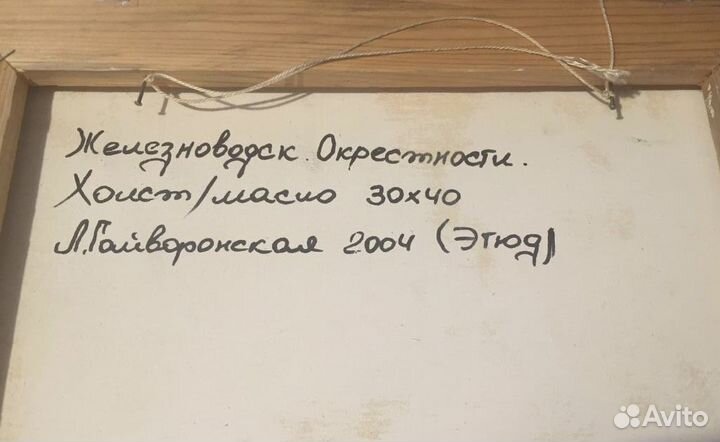 Железноводск. Окрестности.
Холст/масло 30х40
Л.Гайворонская 2004 (Этюд)
Avito